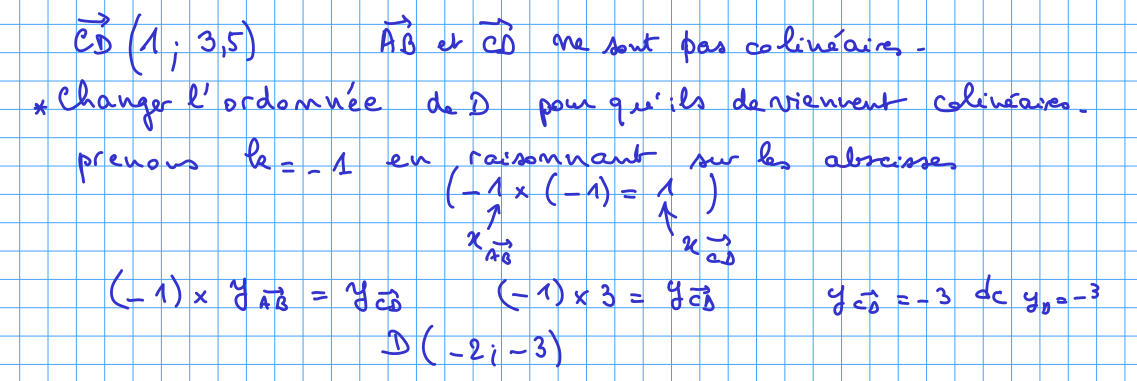 CD (1 ; 3,5) AB et CD ne sont pas colinéaires.
* Changer l'ordonnée de D pour qu'ils deviennent colinéaires.
prenons k = -1 en raisonnant sur les abscisses
(-1 × (-1) = 1)
x AB x CD
(-1) × y AB = y CD (-1) × 3 = y CD y CD = -3 dc y D = -3
D (-2 ; -3)